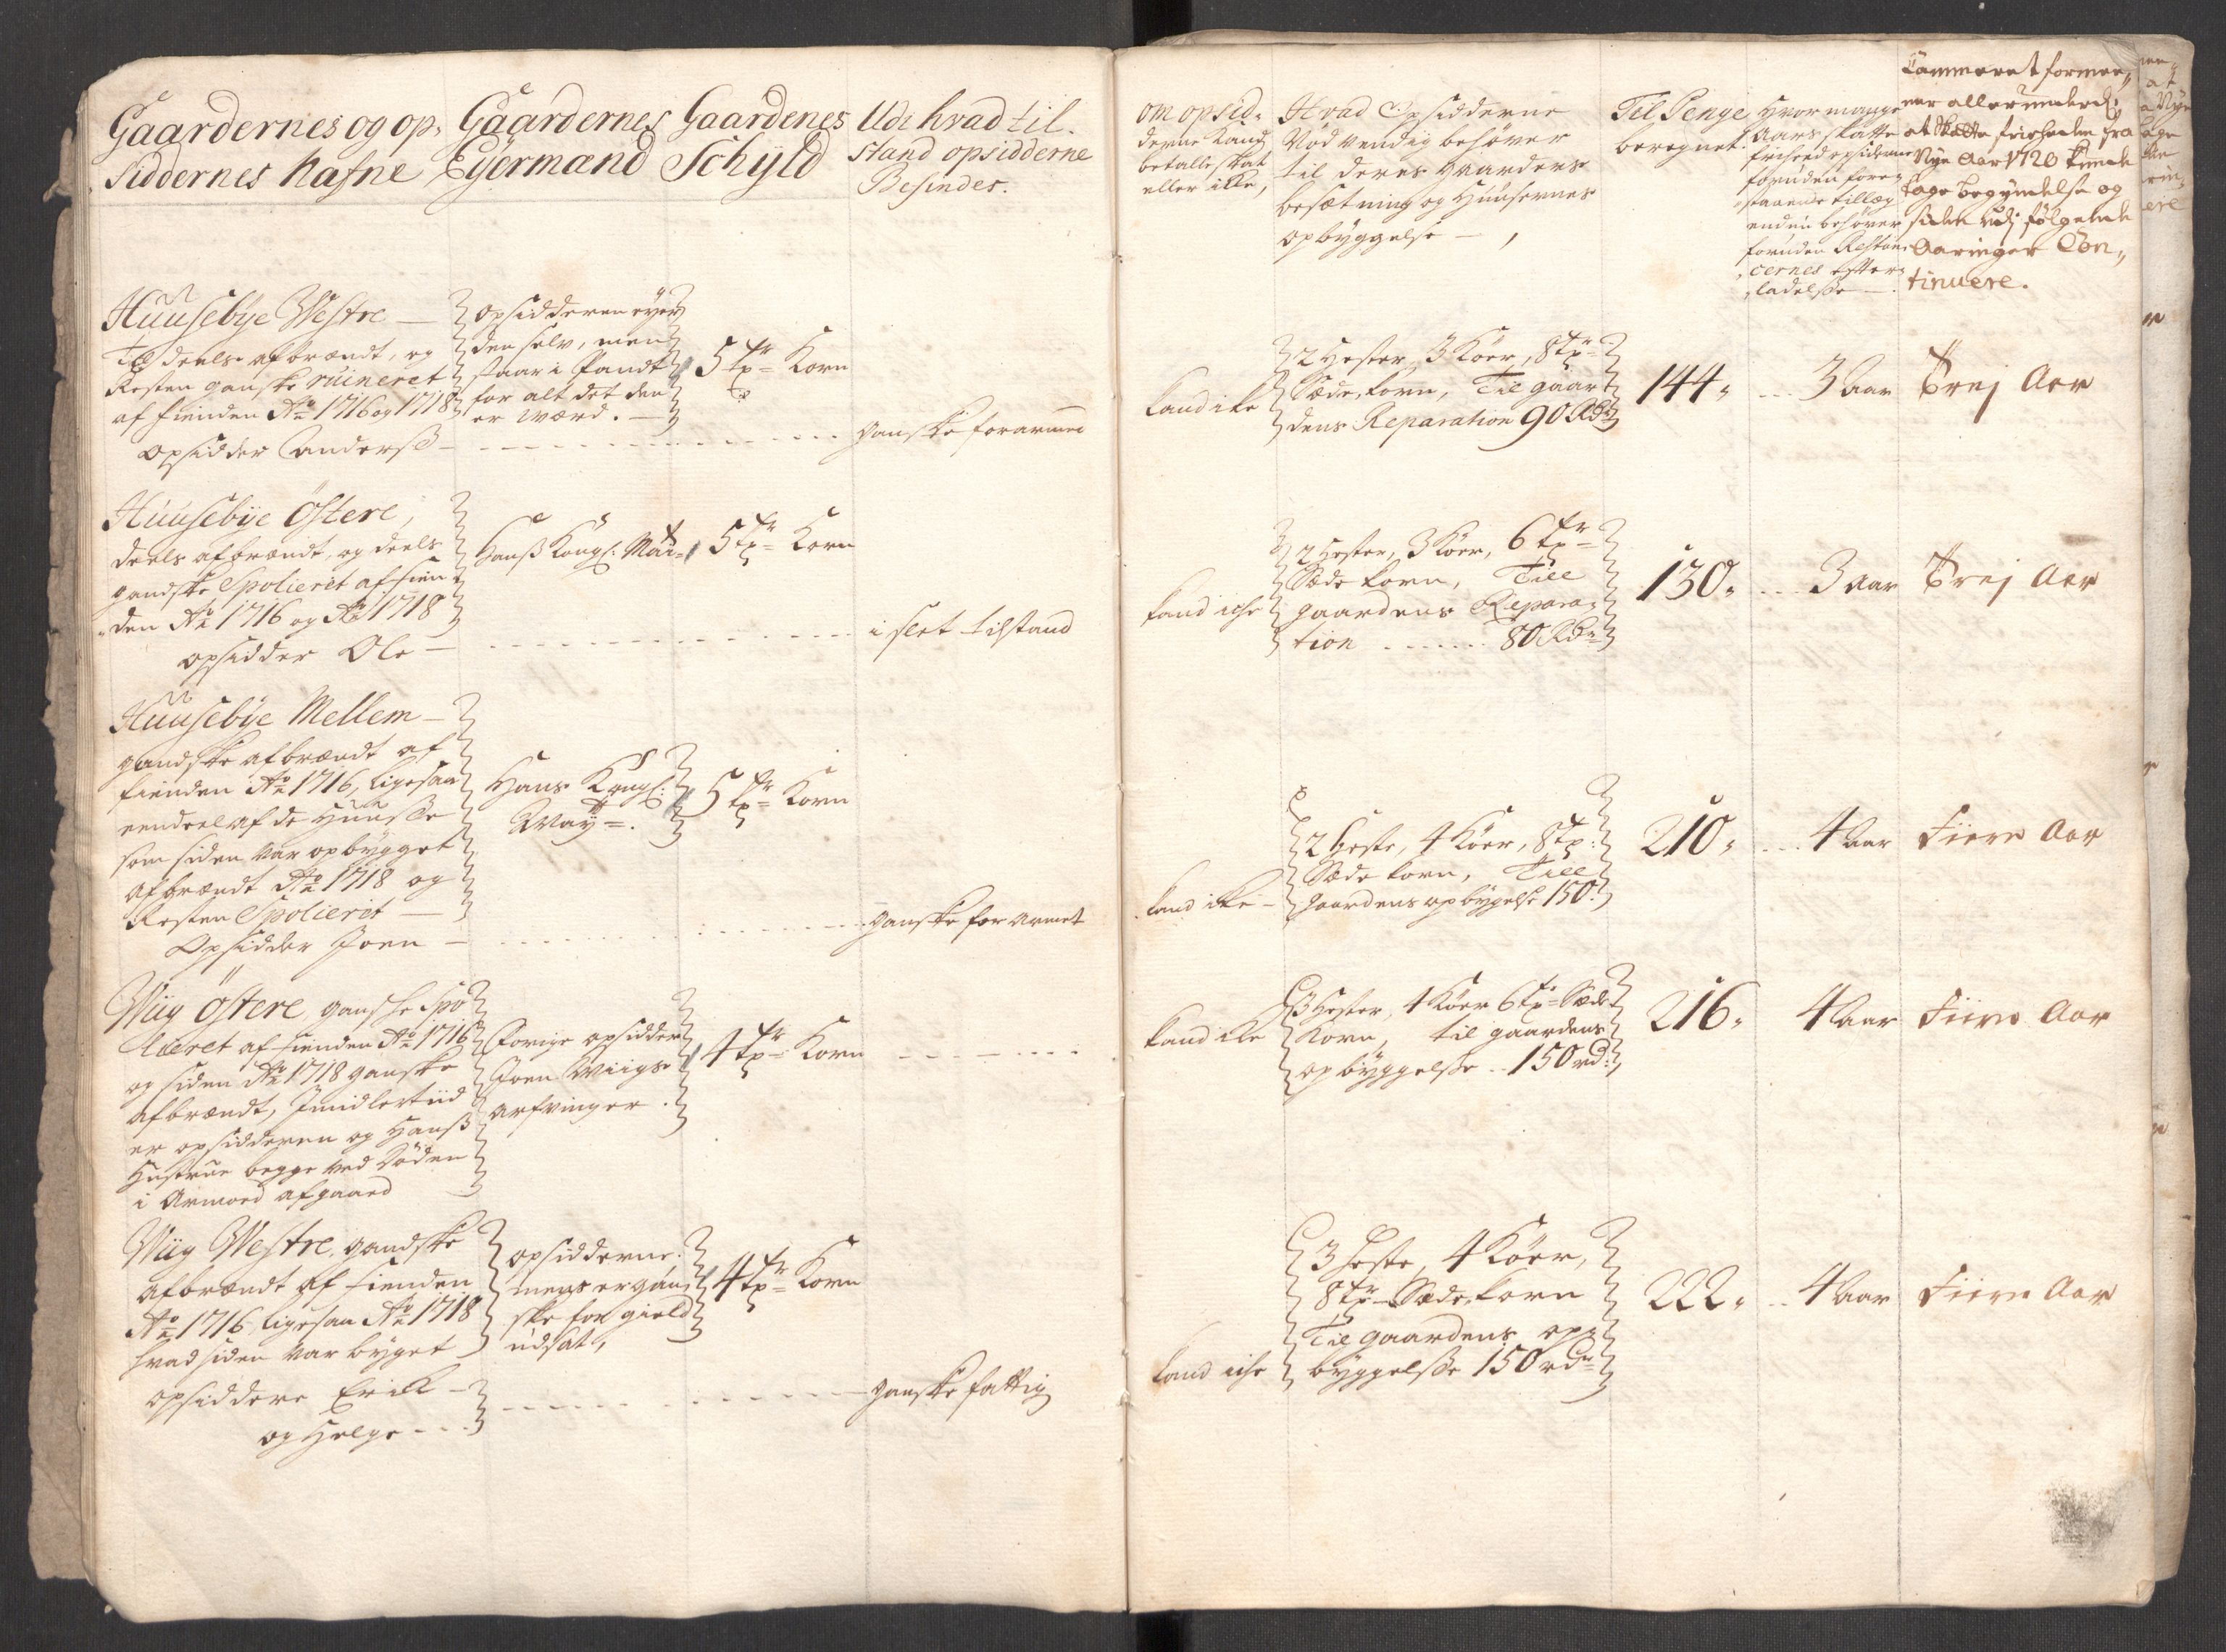 Gaardernes og op-
siddernes Nafne
Gaardernes
Eyermænd
Gaardenes
Schyld
Udi hvad til-
stand opsidderne
Befindes.
Huusebye Westre —
Til deels afbrændt, og
Resten ganske ruineret
af fienden Ao 1716 og 1718
opsidder Anders
opsidderen eyer
den selv, men
staar i Pandt
for alt det den
er værd. —
5 tpr Korn
ganske forarmed
Huusebye Östere,
deels afbrændt, og deels
gandske Spolieret af fien-
den Ao 1716 og Ao 1718
opsidder Ole —
Hans Kongl: Mait
5 tpr Korn
i slet tilstand
Huusebye Mellem —
gandske afbrændt af
fienden Ao 1716, ligesaa
eendeel af de Huusse
som siden var opbygget
afbrændt Ao 1718 og
Resten Spolierit —
Opsidder Joen —
Hans Kongl:
May.
5 tpr Korn
ganske forarmet
Wiig Östere, ganske Spo-
lieret af fienden Ao 1716
og siden Ao 1718 ganske
afbrændt, Imidlertiid
er opsidderen og Hans
Hustrue begge ved Döden
i Armoed afgaaed
Forige opsidder
Joen Wiigs
arfvinger.
4 tpr Korn
Wiig Westre, gandske
afbrændt af fienden
Ao 1716, ligesaa Ao 1718
hvad siden var byget
opsiddere Erik —
og Helge - - -
opsidderne.
mens er gan-
ske for gield
udsat,
4 tpr Korn
ganske fattig
om opsid-
derne Kand
betalle skat
eller ikke,
Hvad Opsidderne
Nödvendig behöver
til deres gaarders
besætning og Huusernes
opbyggelse —,
Til Penge
beregnet.
Hvor mange
Aars skatte
friheed opsidderne
foruden fore-
staaende tillæg
endnu behöver
foruden Restan-
cernes efter-
ladelse —
Cammeret formee-
ner allerunderd:
at Skatte friheeden fra
Nye Aar 1720 kunde
tage begyndelse og
siden udi fölgende
Aaringer Con-
tinuere.
Kand ike
2 Hester, 3 Köer, 8 tpr
Sæde korn, Til gaar-
dens Reparation 90 Rdr
144.
3 Aar
Trej Aar
Kand iche
2 Hester, 3 Köer, 6 tpr
Sæde korn, Till
gaardens Repara-
tion ...... 80 Rdr
130.
3 Aar
Trej Aar
Kand ikke —
2 Heste, 4 Köer, 8 tp:
Sæde korn, Till
gaardens opbygelse 150.
210.
4 Aar
Fiere Aar
Kand ikke
3 Hester, 4 Köer 6 tpr Sæde
Korn, til gaardens
opbyggelse .. 150 rd:
216.
4 Aar
Fiire Aar
Kand iche
3 Heste, 4 Köer,
8 tpr Sæde korn
Til gaardens op-
byggelse 150 rdr
222.
4 Aar
Fiere Aar